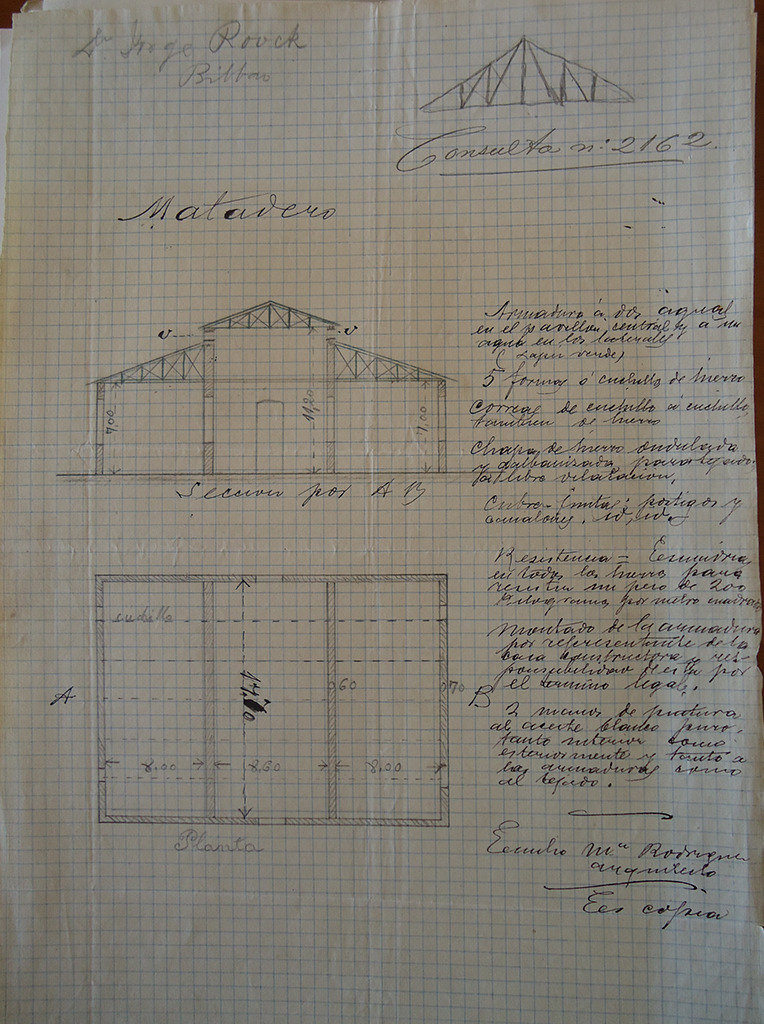 Rouck
Bilbao
Consulta n: 2162.
Matadero
Armadura á dos aguas
en el pavillon central y a un
agua en los laterales
(Lapiz verde)
5 formas ó cuchillos de hierro
Correas de cuchillo á cuchillo
tambien de hierro
Chapa de hierro ondulada
y galvanizada para tejado
libre dilatacion.
v v
7,00 11,20 7,00
Seccion por A B
y
canalones. id, id.
Resistencia =
en todos los hierros para
resistir un peso de 200
Kilogramos por metro cuadrado
Montado de la armadura
por representante de la
casa constructora y res-
ponsabilidad de esta por
el termino legal.
2 manos de pintura
al aceite blanco puro,
tanto interior como
exteriormente y tanto a
las armaduras como
al tejado.
cuchillo
A B
60 70
8,00 8,60 8,00
Planta
Mª Rodriguez
arquitecto
Es copia